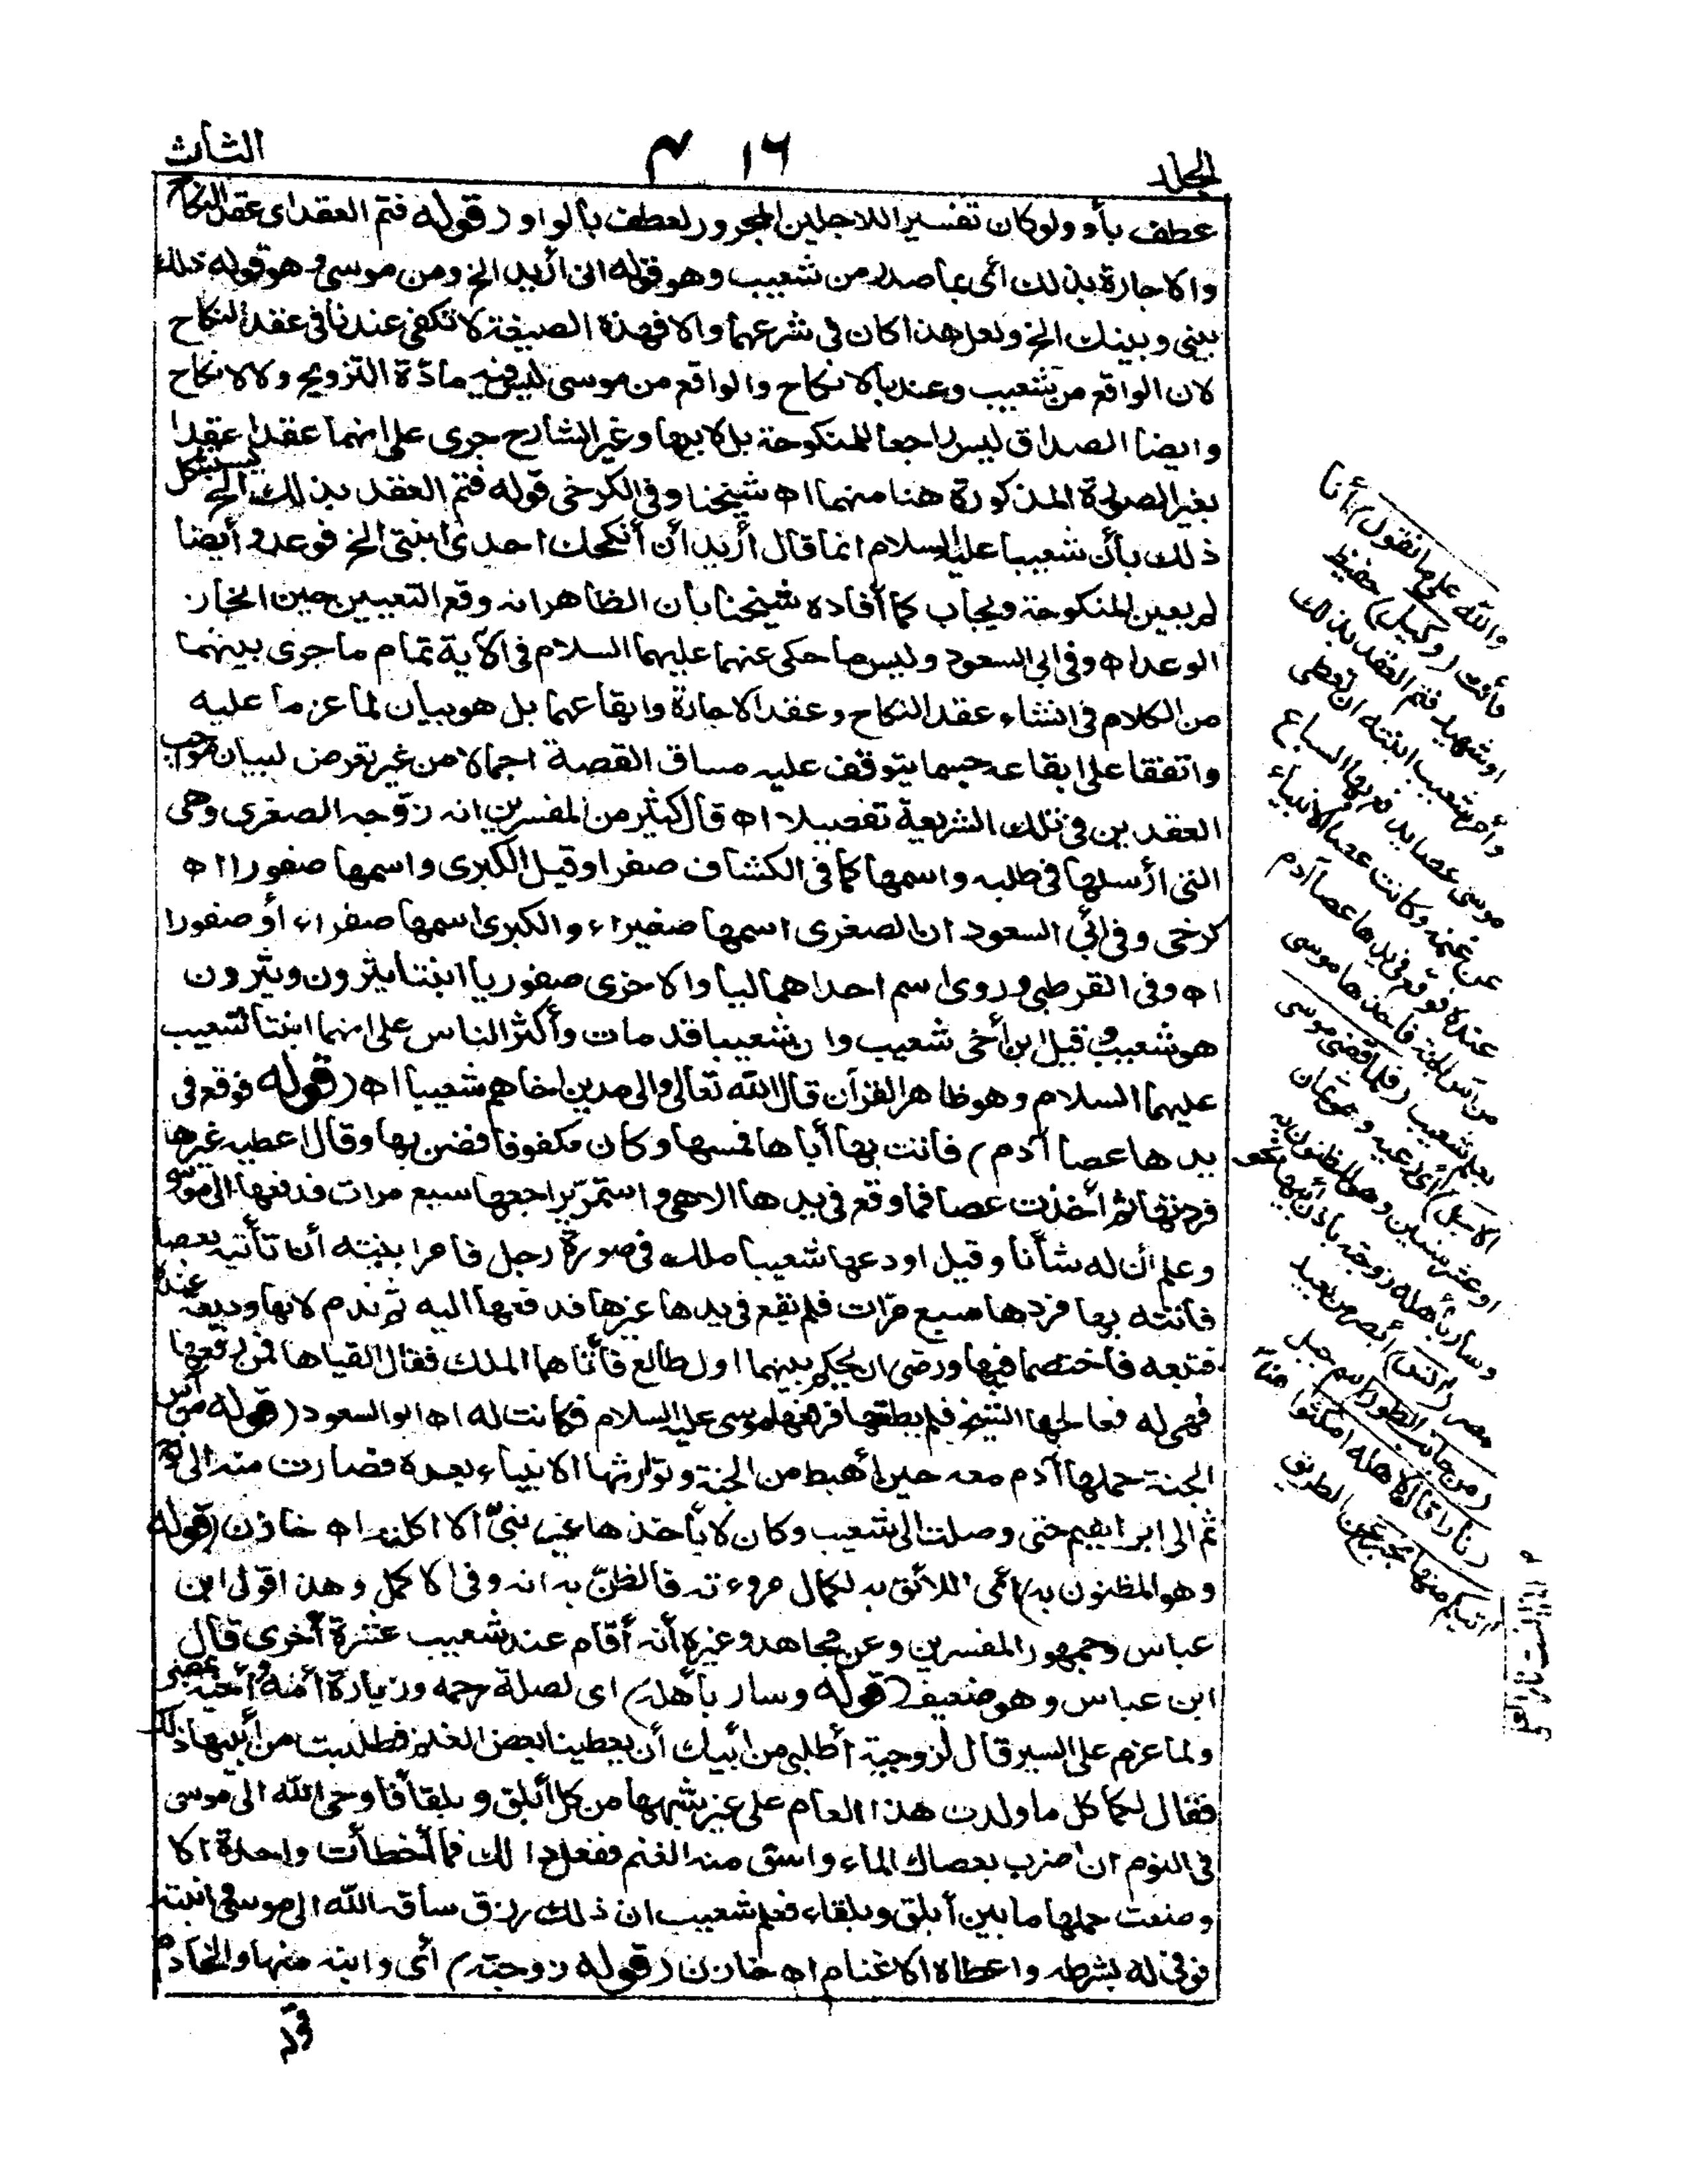 المجلد
١٦ م
الثالث
عطف بأو ولو كان تفسيرا للاجلين المجرور لعطف بالواو (قوله فتم العقد اى عقد النكاح
والاجارة بذلك أى بما صدر من شعيب وهو قوله انى أريد الخ ومن موسى وهو قوله ذلك
بينى وبينك الخ ولعل هذا كان فى شرعهما والا فهذه الصيغة لا تكفى عندنا فى عقد النكاح
لان الواقع من شعيب وعد بالانكاح والواقع من موسى ليس فيه مادّة التزويج ولا الانكاح
وايضا الصداق ليس راجعا للمنكوحة بل لابيها وغير الشارح جرى على انهما عقدا عقدا
بغير الصورة المذكورة هنا منهما اه شيخنا وفى الكرخى قوله فتم العقد بذلك الخ يستشكل
ذلك بأن شعيبا عليه السلام انما قال أريد أن أنكحك احدى ابنتى الخ فوعد وأيضا
لم يعين المنكوحة ويجاب كما أفاده شيخنا بان الظاهر انه وقع التعيين حين انجاز
الوعد اه وفى ابى السعود وليس ما حكى عنهما عليهما السلام فى الآية تمام ما جرى بينهما
من الكلام فى انشاء عقد النكاح وعقد الاجارة وايقاعهما بل هو بيان لما عزما عليه
واتفقا على ايقاعه حسبما يتوقف عليه مساق القصة اجمالا من غير تعرض لبيان مواجب
العقدين فى تلك الشريعة تفصيلا اه قال كثير من المفسرين انه زوّجه الصغرى وهى
التى أرسلها فى طلبه واسمها كما فى الكشاف صفرا وقيل الكبرى واسمها صفورا اه
كرخى وفى أبى السعود ان الصغرى اسمها صفيراء والكبرى اسمها صفراء أو صفورا
اه وفى القرطبى وروى اسم احداهما ليا والاخرى صفوريا ابنتا يثرون ويثرون
هو شعيب وقيل ابن أخى شعيب وان شعيبا قد مات وأكثر الناس على انهما ابنتا شعيب
عليهما السلام وهو ظاهر القرآن قال الله تعالى والى مدين اخاهم شعيبا اه (قوله فوقع فى
يدها عصا آدم) فاتت بها أباها فمسها وكان مكفوفا فضن بها وقال اعطيه غيرها
فردتها ثم أخذت عصا فما وقع فى يدها الا هى واستمرّ يراجعها سبع مرات فدفعها الى موسى
وعلم أن له شأنا وقيل اودعها شعيبا ملك فى صورة رجل فامر ابنته أن تأتيه بعصا
فأتته بها فردها سبع مرّات فلم يقع فى يدها غيرها فدفعها اليه ثم ندم لانها وديعة عنده
فتبعه فاختصما فيها ورضى ان يحكم بينهما اول طالع فأتاهما الملك فقال القياها فمن رفعها
فهى له فعالجها الشيخ فلم يطقها فرفعها موسى عليه السلام فكانت له اه ابو السعود (قوله من آس
الجنة حملها آدم معه حين أهبط من الجنة وتوارثها الانبياء بعده فصارت منه الى نوح
ثم الى ابراهيم حتى وصلت الى شعيب وكان لا يأخذها غير نبىّ الا اكلته اه خازن (قوله
وهو المظنون به) أى اللائق به لكمال مروءته فالظنّ به انه وفى الاكمل وهذا قول ابن
عباس وجمهور المفسرين وعن مجاهد وغيره أنه أقام عند شعيب عشرة أخرى قال
ابن عباس وهو ضعيف (قوله وسار بأهله) اى لصلة رحمه وزيارة أمه وأخيه بمصر
ولما عزم على السير قال لزوجته أطلبى من أبيك أن يعطينا بعض الغنم فطلبت من أبيها ذلك
فقال لكما كل ما ولدت هذا العام على غير شبهها من كل أبلق وبلقا فاوحى الله الى موسى
فى النوم ان اضرب بعصاك الماء واسق منه الغنم ففعل ذلك فما أخطأت واحدة الا
وضعت حملها ما بين أبلق وبلقاء فعلم شعيب ان ذلك رزق ساقه الله الى موسى وابنته
فوفى له بشرطه واعطاه الاغنام اه خازن (قوله زوجته) أى وابنه منها والخادم
والله على ما نقول) أنا
وأنت (وكيل) حفيظ
او شهيد فتم العقد بذلك
وأمر شعيب ابنته ان تعطى
موسى عصا يدفع بها السباع
عن غنمه وكانت عصا الانبياء
عنده فوقع فى يدها عصا آدم
من آس الجنة فأخذها موسى
بعلم شعيب (فلما قضى موسى
الاجل) أى رعيه وهو ثمان
او عشر سنين وهو المظنون به
وسار بأهله زوجته باذن أبيها نحو
مصر (آنس) أبصر من بعيد
(من جانب الطور) اسم جبل
(نارا قال لاهله امكثوا) هنا